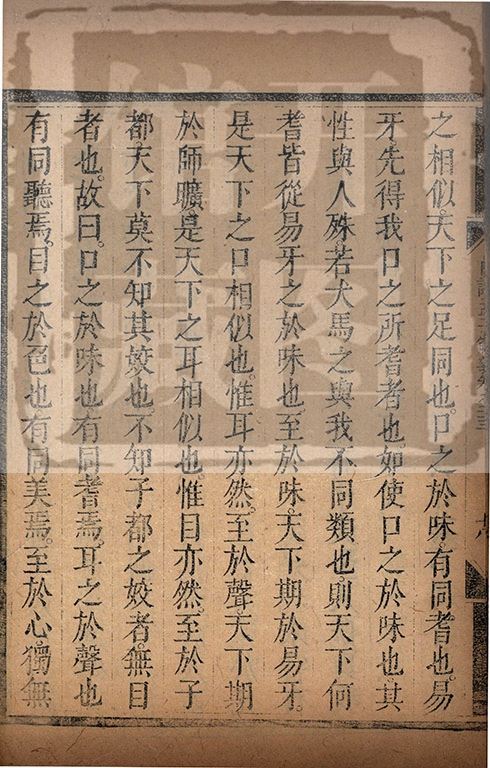 之相似。天下之足同也。口之於味有同耆也。易
牙。先得我口之所耆者也。如使口之於味也。其
性與人殊。若犬馬之與我不同類也。則天下何
耆皆從易牙之於味也。至於味。天下期於易牙。
是天下之口相似也。惟耳亦然。至於聲。天下期
於師曠。是天下之耳相似也。惟目亦然。至於子
都。天下莫不知其姣也。不知子都之姣者。無目
者也。故曰。口之於味也。有同耆焉。耳之於聲也
有同聽焉。目之於色也。有同美焉。至於心。獨無